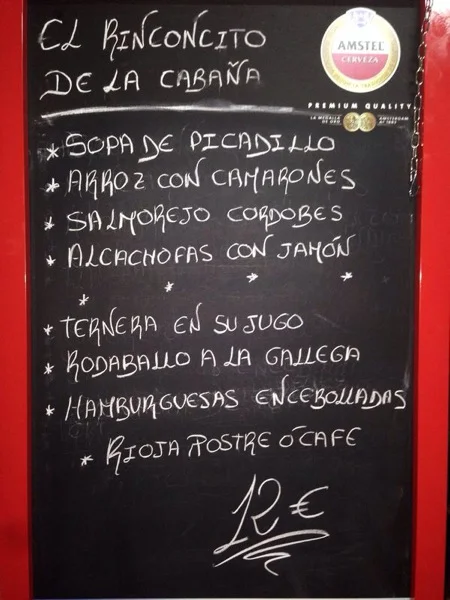 EL RINCONCITO
DE LA CABAÑA
AMSTEL
CERVEZA
PREMIUM QUALITY
LA MEDALLA
DE ORO
AMSTERDAM
* SOPA DE PICADILLO
* ARROZ CON CAMARONES
* SALMOREJO CORDOBES
* ALCACHOFAS CON JAMÓN
* * * *
* TERNERA EN SU JUGO
* RODABALLO A LA GALLEGA
* HAMBURGUESAS ENCEBOLLADAS
* RIOJA POSTRE Ó CAFE
12 €